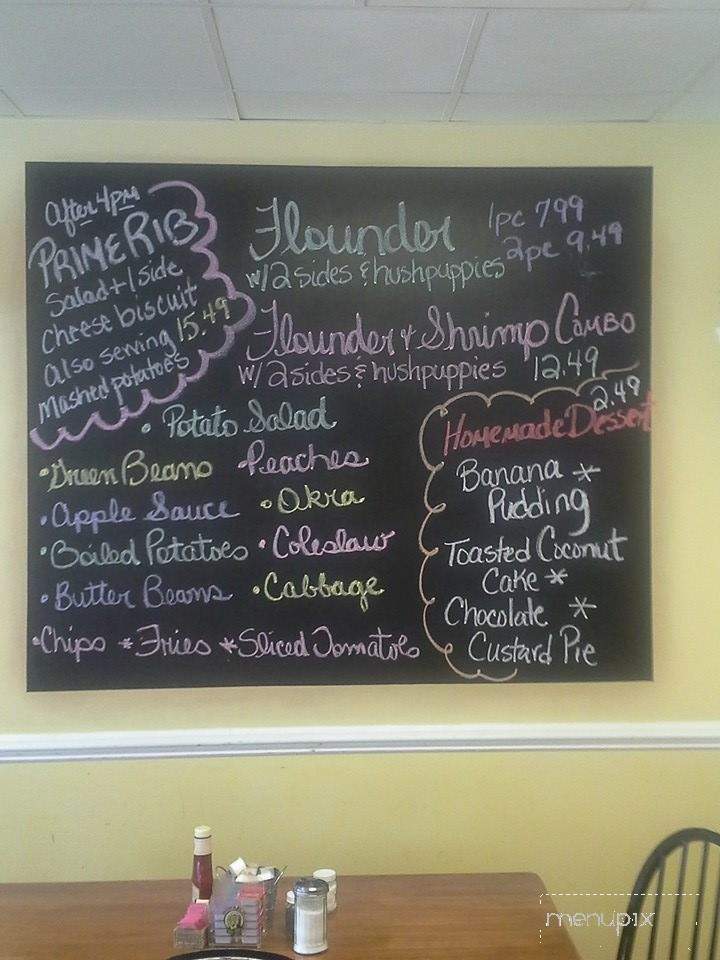 After 4pm
PRIME RIB
Salad + 1 side
cheese biscuit
15.49
Also serving
Mashed potatoes
Flounder
1pc 7.99
2pc 9.49
w/2 sides & hushpuppies
Flounder & Shrimp Combo
w/2 sides & hushpuppies 12.49
• Potato Salad
• Green Beans • Peaches
• Apple Sauce • Okra
• Boiled Potatoes • Coleslaw
• Butter Beans • Cabbage
• Chips * Fries * Sliced Tomatoes
2.49
Homemade Dessert
Banana *
Pudding
Toasted Coconut
Cake *
Chocolate *
Custard Pie
menupix